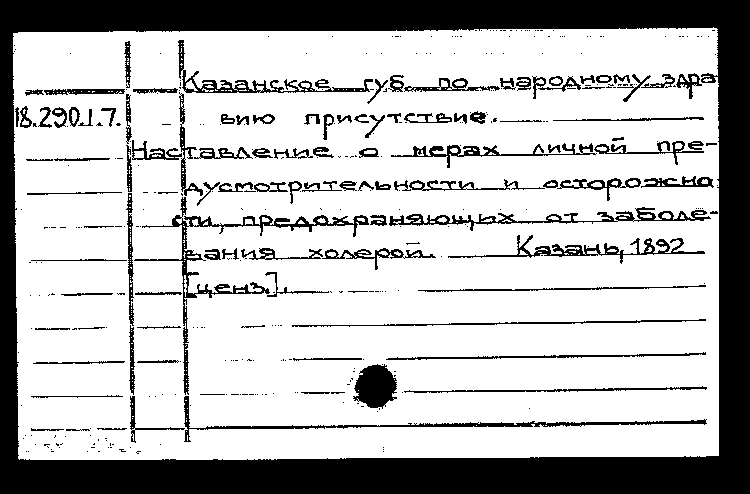 Казанское губ. по народному здра
18.290.1.7. вию присутствие.
Наставление о мерах личной пре-
дусмотрительности и осторожно
сти, предохраняющих от заболе-
вания холерой. Казань, 1892
[ценз.].